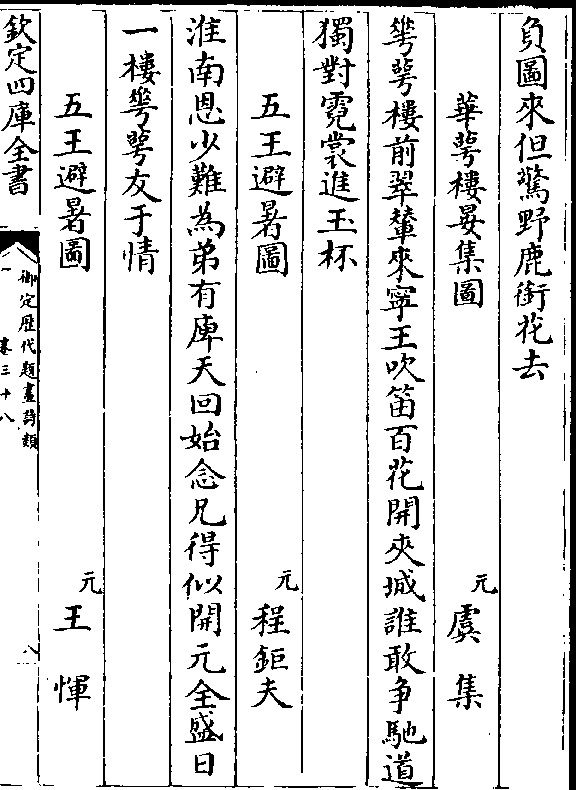 負圖來但驚野鹿銜花去
華萼樓晏集圖
元 虞集
華萼樓前翠輦來寧王吹笛百花開夾城誰敢爭馳道
獨對霓裳進玉杯
五王避暑圖
元 程鉅夫
淮南恩少難為弟有庳天回始念兄得似開元全盛日
一樓華萼友于情
五王避暑圖
元 王惲
欽定四庫全書
御定歷代題畫詩類
卷三十八
八